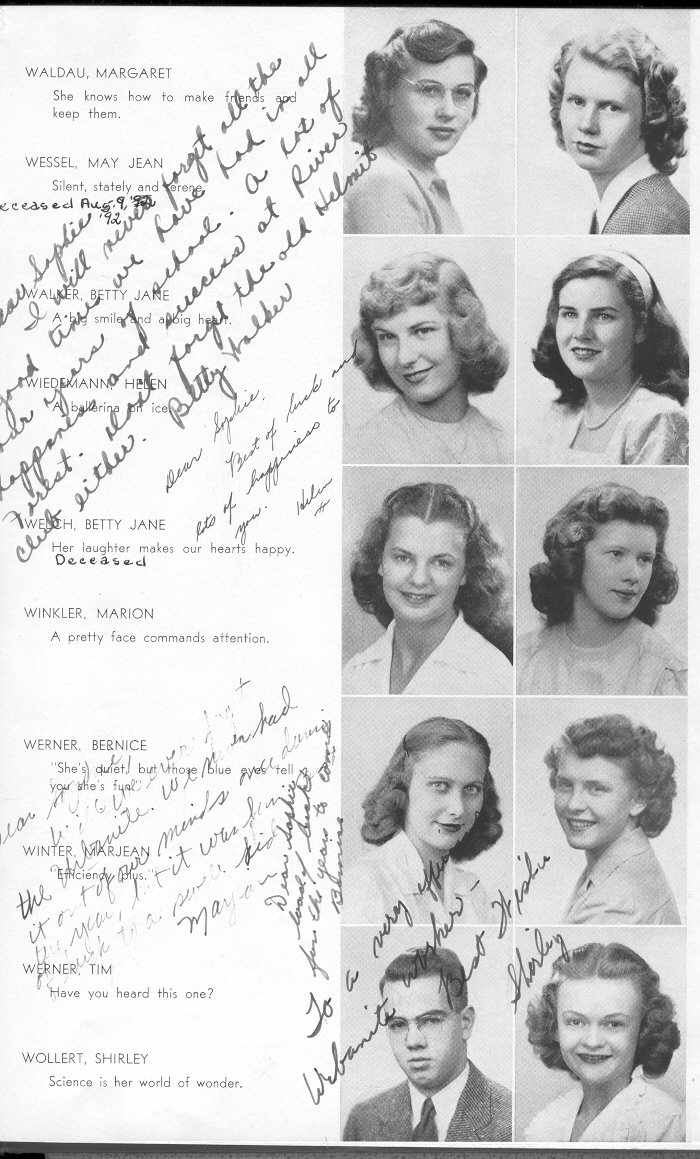 WALDAU, MARGARET
She knows how to make friends and
keep them.
WESSEL, MAY JEAN
Silent, stately and serene.
eceased Aug. 9,
'92
WALKER, BETTY JANE
A big smile and a big heart.
WIEDEMANN, HELEN
A ballerina on ice.
WELCH, BETTY JANE
Her laughter makes our hearts happy.
Deceased
WINKLER, MARION
A pretty face commands attention.
WERNER, BERNICE
"She's quiet, but those blue eyes tell
you she's fun."
WINTER, MARJEAN
"Efficiency plus."
WERNER, TIM
Have you heard this one?
WOLLERT, SHIRLEY
Science is her world of wonder.
ear Sophie
I will never forget all the
good times we have had in all
our years of school. A lot of
happiness and success at River
Forest. Don't forget the old Helmit
club either. Betty Walker
Dear Sophie.
Best of luck an
lots of happiness to
you. Helen
the Urbanite. We never had
it out of our minds once during
the year, but it was fun
luck to a swell kid
Marjean
Dear Sophie
loads luck
for the years to come
Bernice
To a very
Urbanite
Best Wishes
Shirley